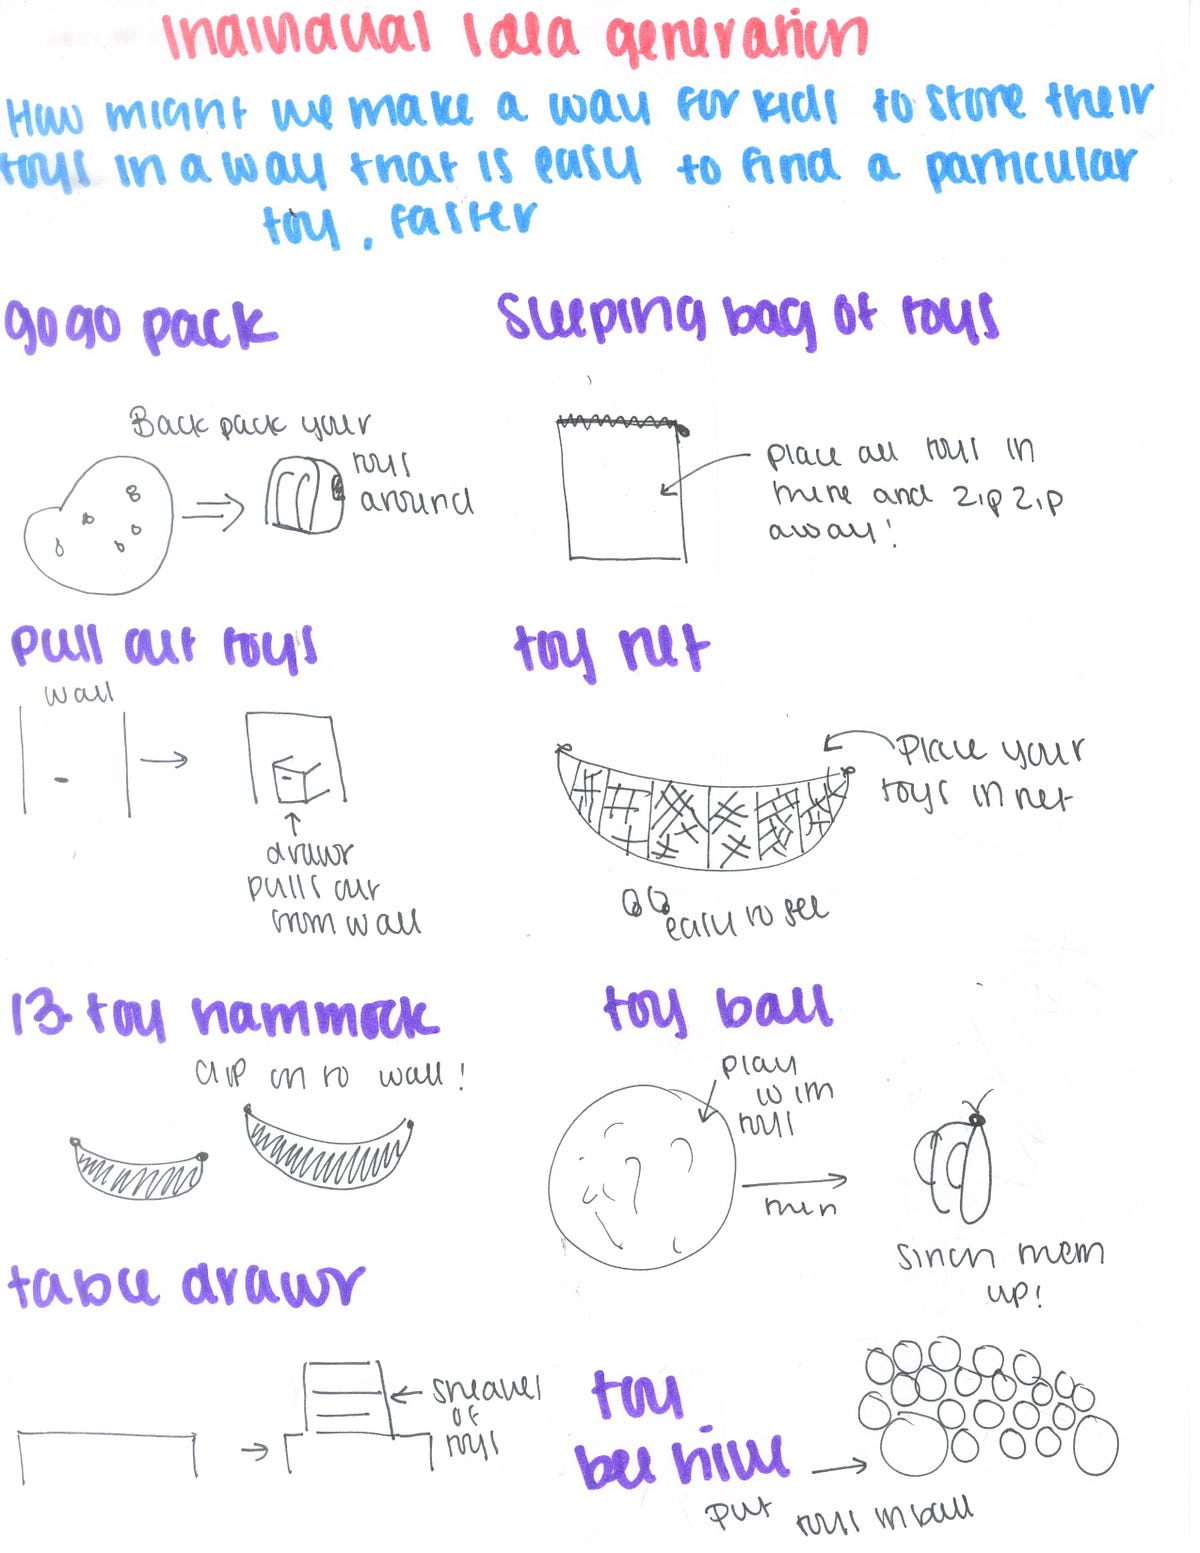 Individual Idea generation
How might we make a way for kids to store their
toys in a way that is easy to find a particular
toy, faster
gogo pack
Back pack your
toys
around
Sleeping bag of toys
place all toys in
there and zip zip
away!
pull out toys
wall
drawr
pulls out
from wall
toy net
Place your
toys in net
easy to see
13. toy hammock
clip on to wall!
toy ball
play
with
toys
then
sinch them
up!
table drawr
of
toys
toy
bee hive
Put toys in ball